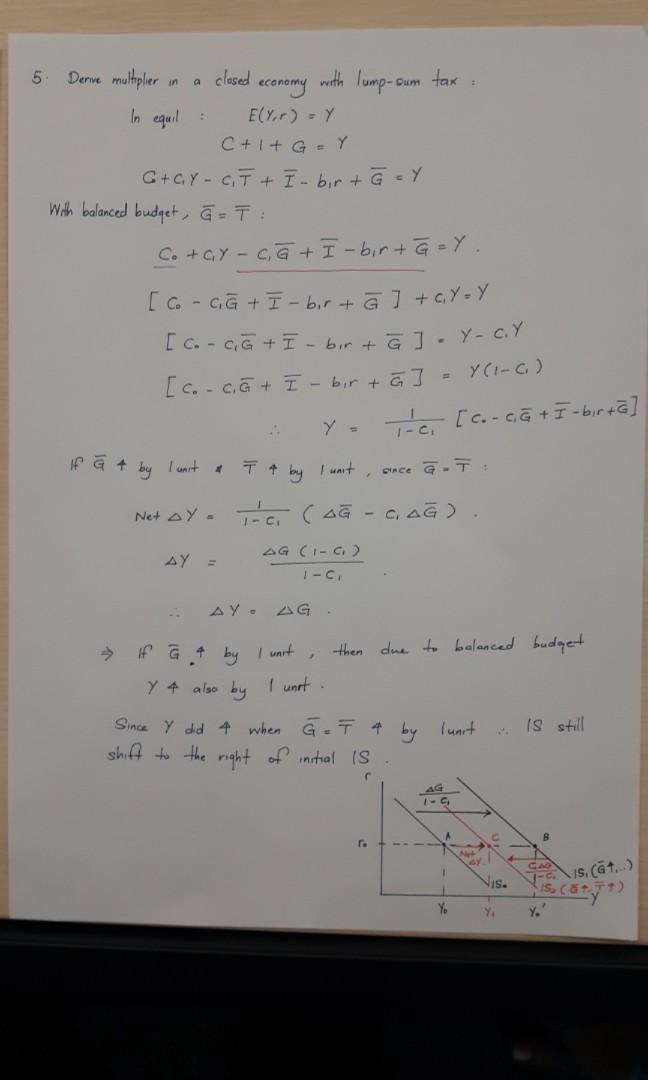 5. Derive multiplier in a closed economy with lump-sum tax :
In equil : E(Y,r) = Y
C + I + G = Y
C₀ + C₁Y - C₁T̅ + I̅ - b₁r + G̅ = Y
With balanced budget, G̅ = T̅ :
C₀ + C₁Y - C₁G̅ + I̅ - b₁r + G̅ = Y .
[ C₀ - C₁G̅ + I̅ - b₁r + G̅ ] + C₁Y = Y
[ C₀ - C₁G̅ + I̅ - b₁r + G̅ ] = Y - C₁Y
[ C₀ - C₁G̅ + I̅ - b₁r + G̅ ] = Y(1-C₁)
∴ Y = 1/(1-C₁) [ C₀ - C₁G̅ + I̅ - b₁r + G̅ ]
If G̅ ↑ by 1 unit & T̅ ↑ by 1 unit, since G̅ = T̅ :
Net ΔY = 1/(1-C₁) ( ΔG̅ - C₁ΔG̅ ) .
ΔY = ΔG(1-C₁)/(1-C₁) .
∴ ΔY = ΔG .
⇒ If G̅ ↑ by 1 unit, then due to balanced budget
Y ↑ also by 1 unit .
Since Y did ↑ when G̅ = T̅ ↑ by 1 unit ∴ IS still
shift to the right of initial IS .
r
ΔG/(1-C₁)
r₀ A C B
Net ΔY
C₁ΔG/(1-C₁)
IS₁(G̅↑,..)
IS₀
IS₂(G̅↑,T̅↑)
Y
Y₀ Y₁ Y₀'